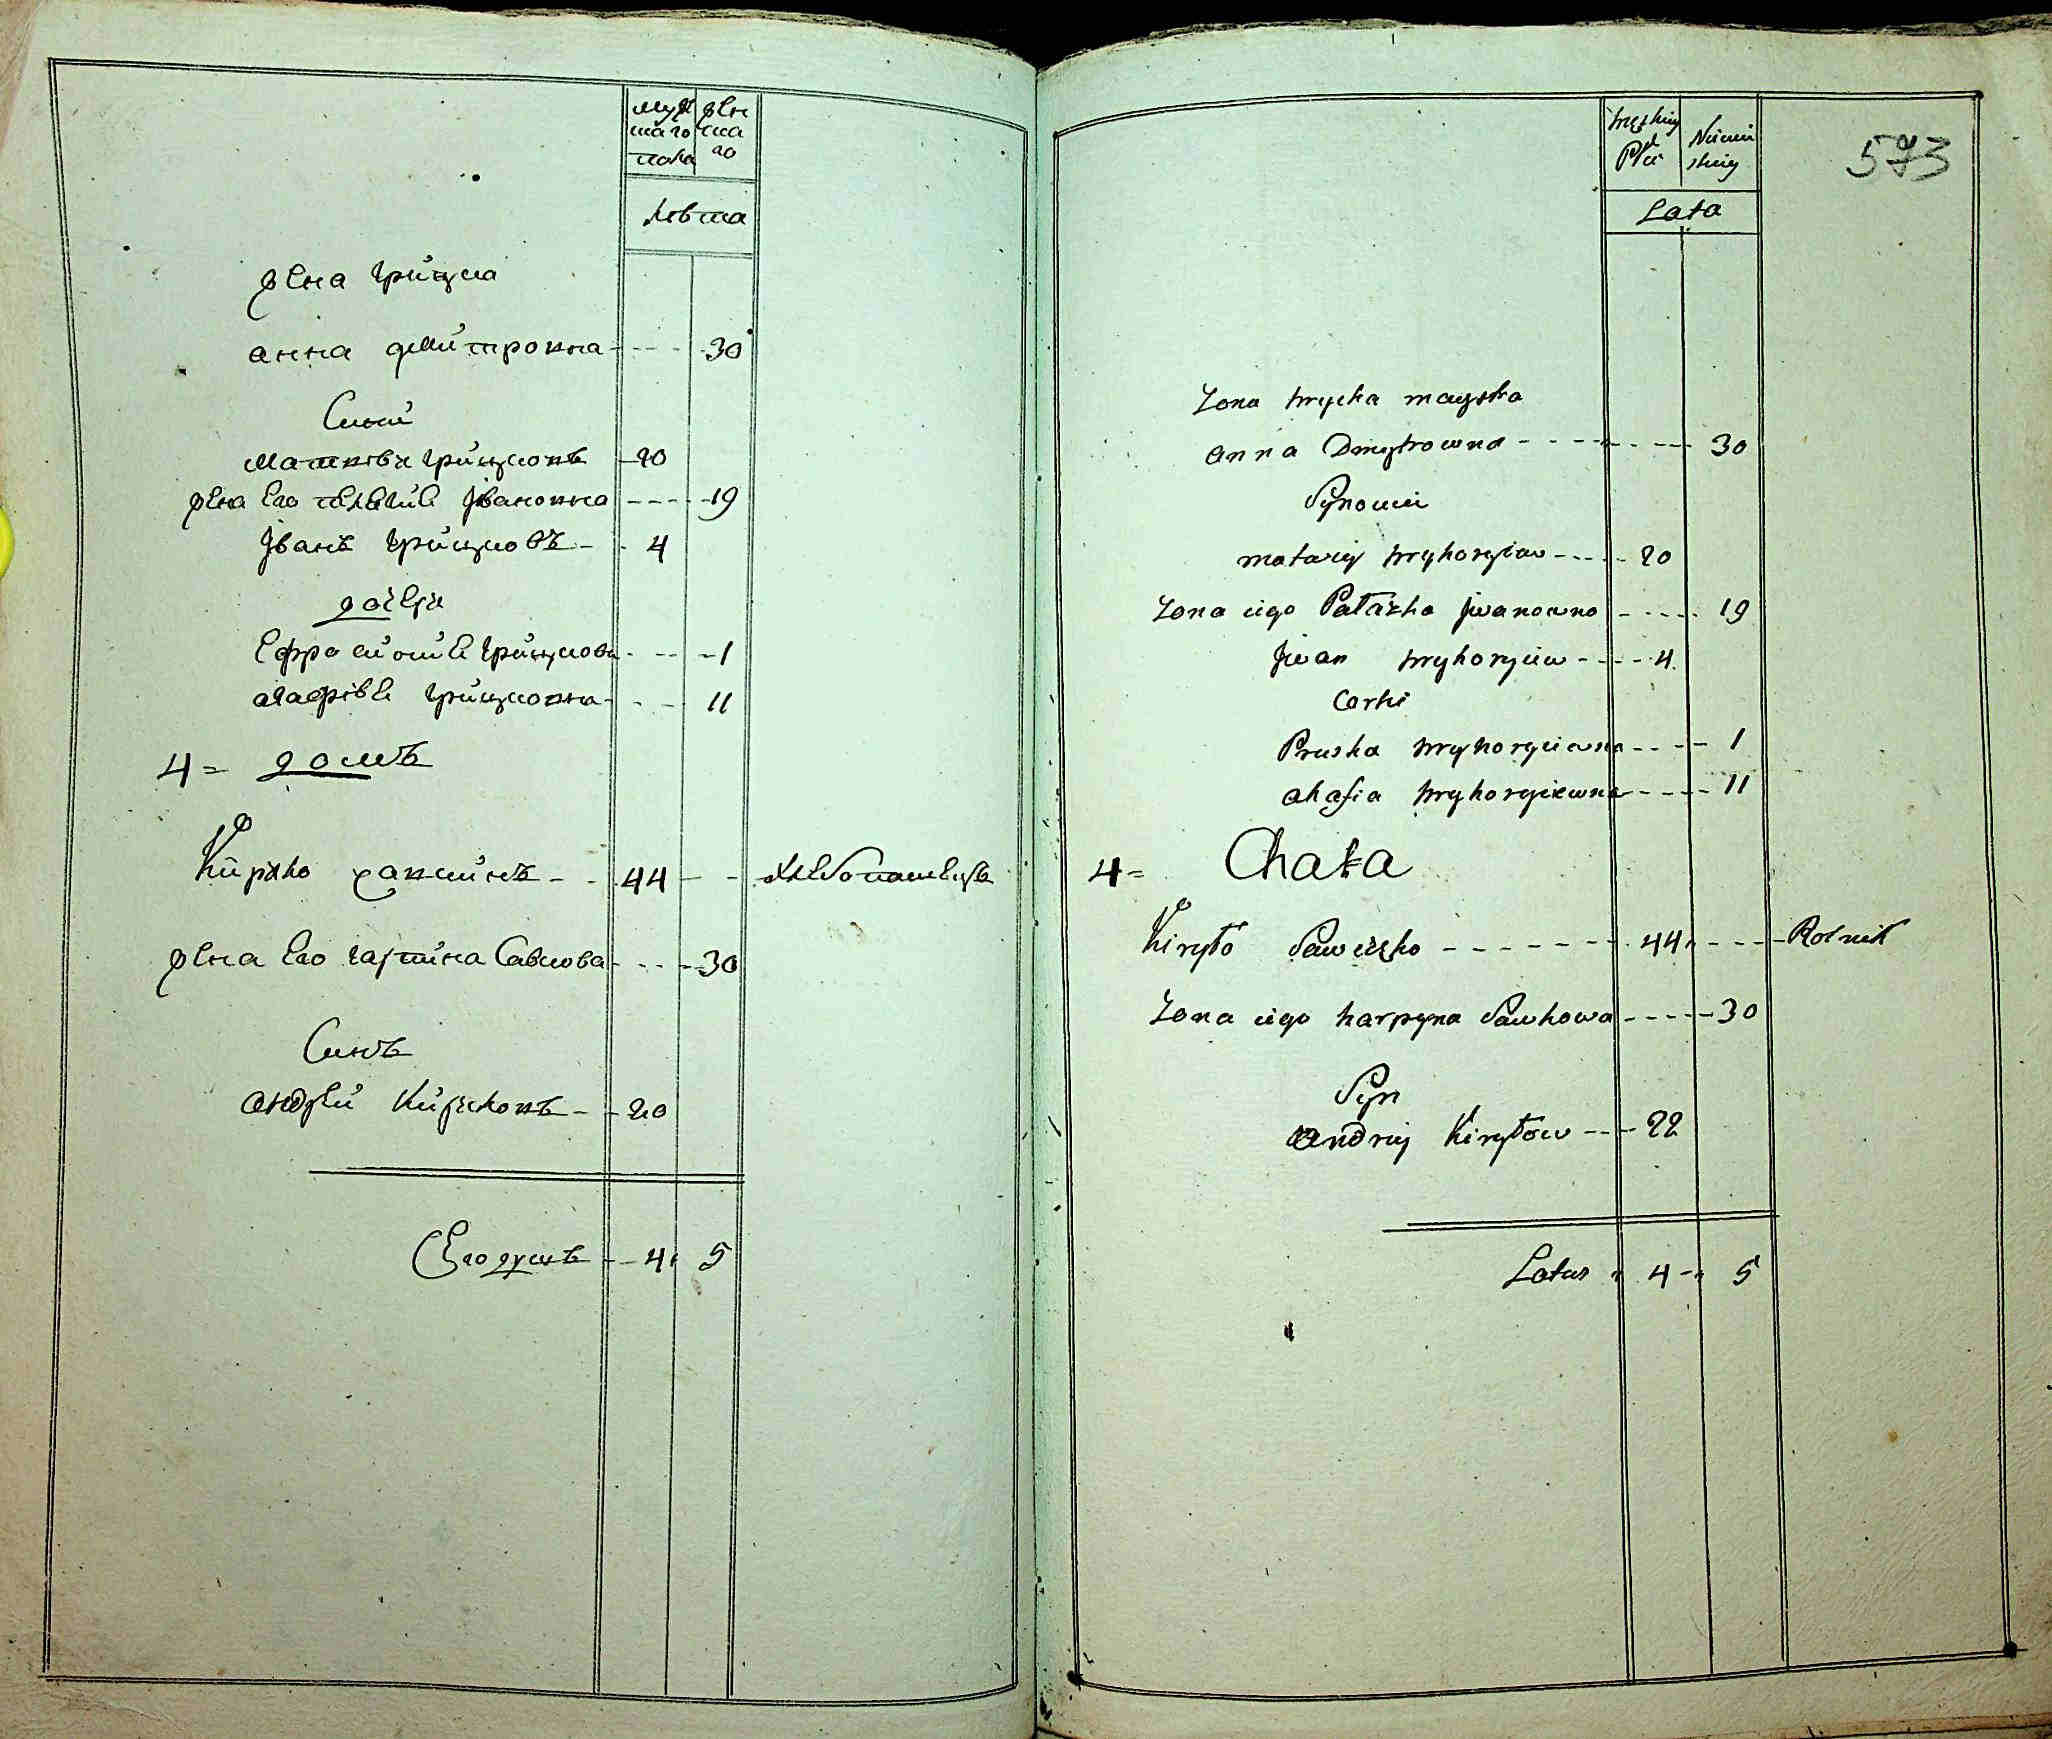 Муж жен
скаго ска
пола го
Лѣта
жена грицка
анна дмитровна 30
Сини
Матвѣй грицковъ 20
жена его пелагия Івановна 19
Іванъ грицковъ 4
дочери
Ефросиния грицкова 1
агафія грицковна 11
4 = домъ
Кирило 44 хлебопашецъ
жена его гарпина Савкова 30
Синъ
андрей Кириловъ 20
Его душъ 4 5
Męzkiey Niewie
Płci skiey
Lata
573
Zona hrycka
anna Dmytrowna 30
Synowie
matwiy hryhoryiow 20
Zona iego Pałażka jwanowna 19
jwan hryhoryiew 4
Corki
Pruska hryhoryiewna 1
ahafia hryhoryiewna 11
4 = Chata
Kiryło Saweczko 44 Rolnik
Zona iego harpyna Sawkowa 30
Syn
andriy Kiryłow 22
Latus 4 5